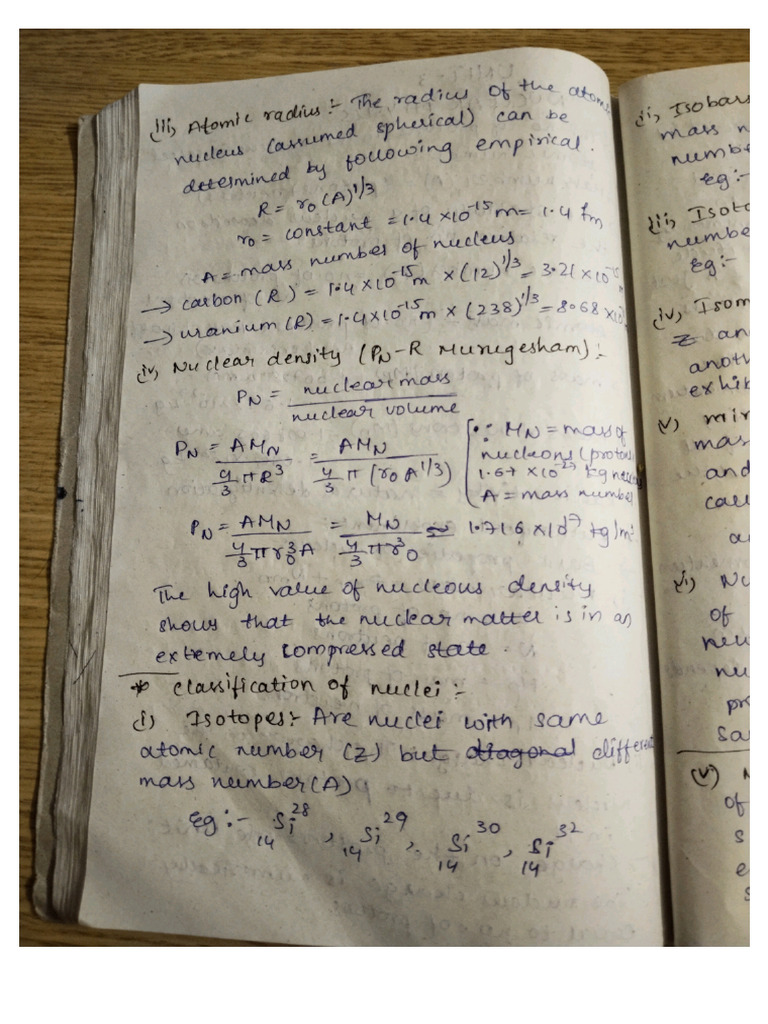 (iii) Atomic radius:- The radius of the atoms
nucleus (assumed spherical) can be
determined by following empirical.
R = r₀ (A)^1/3
r₀ = constant = 1.4 × 10^-15 m = 1.4 fm
A = mass number of nucleus
→ carbon (R) = 1.4×10^-15 m × (12)^1/3 = 3.21 × 10^-15 m
→ uranium (R) = 1.4×10^-15 m × (238)^1/3 = 8.68 × 10
(iv) Nuclear density (PN - R Murugesham):-
PN = nuclear mass / nuclear volume
PN = AMN / 4/3 πR³ = AMN / 4/3 π (r₀ A^1/3) [∵ MN = mass of
nucleons (proto
1.67 × 10^-27 kg
A = mass number
PN = AMN / 4/3 πr₀³A = MN / 4/3 πr₀³ ≈ 1.716 × 10^17 kg/m³
The high value of nucleous density
shows that the nuclear matter is in an
extremely compressed state.
* Classification of nuclei:-
(i) Isotopes:- Are nuclei with same
atomic number (Z) but diagonal different
mass number (A)
Eg:- ₁₄Si^28, ₁₄Si^29, ₁₄Si^30, ₁₄Si^32
ii, Isobars
mass n
numbe
Eg:-
iii, Isoto
numbe
Eg:-
iv, Isom
Z an
anoth
exhib
(v) mir
mas
and
cau
a
vi) Nu
of
neu
nu
pr
sa
(v)
of
s
e
s